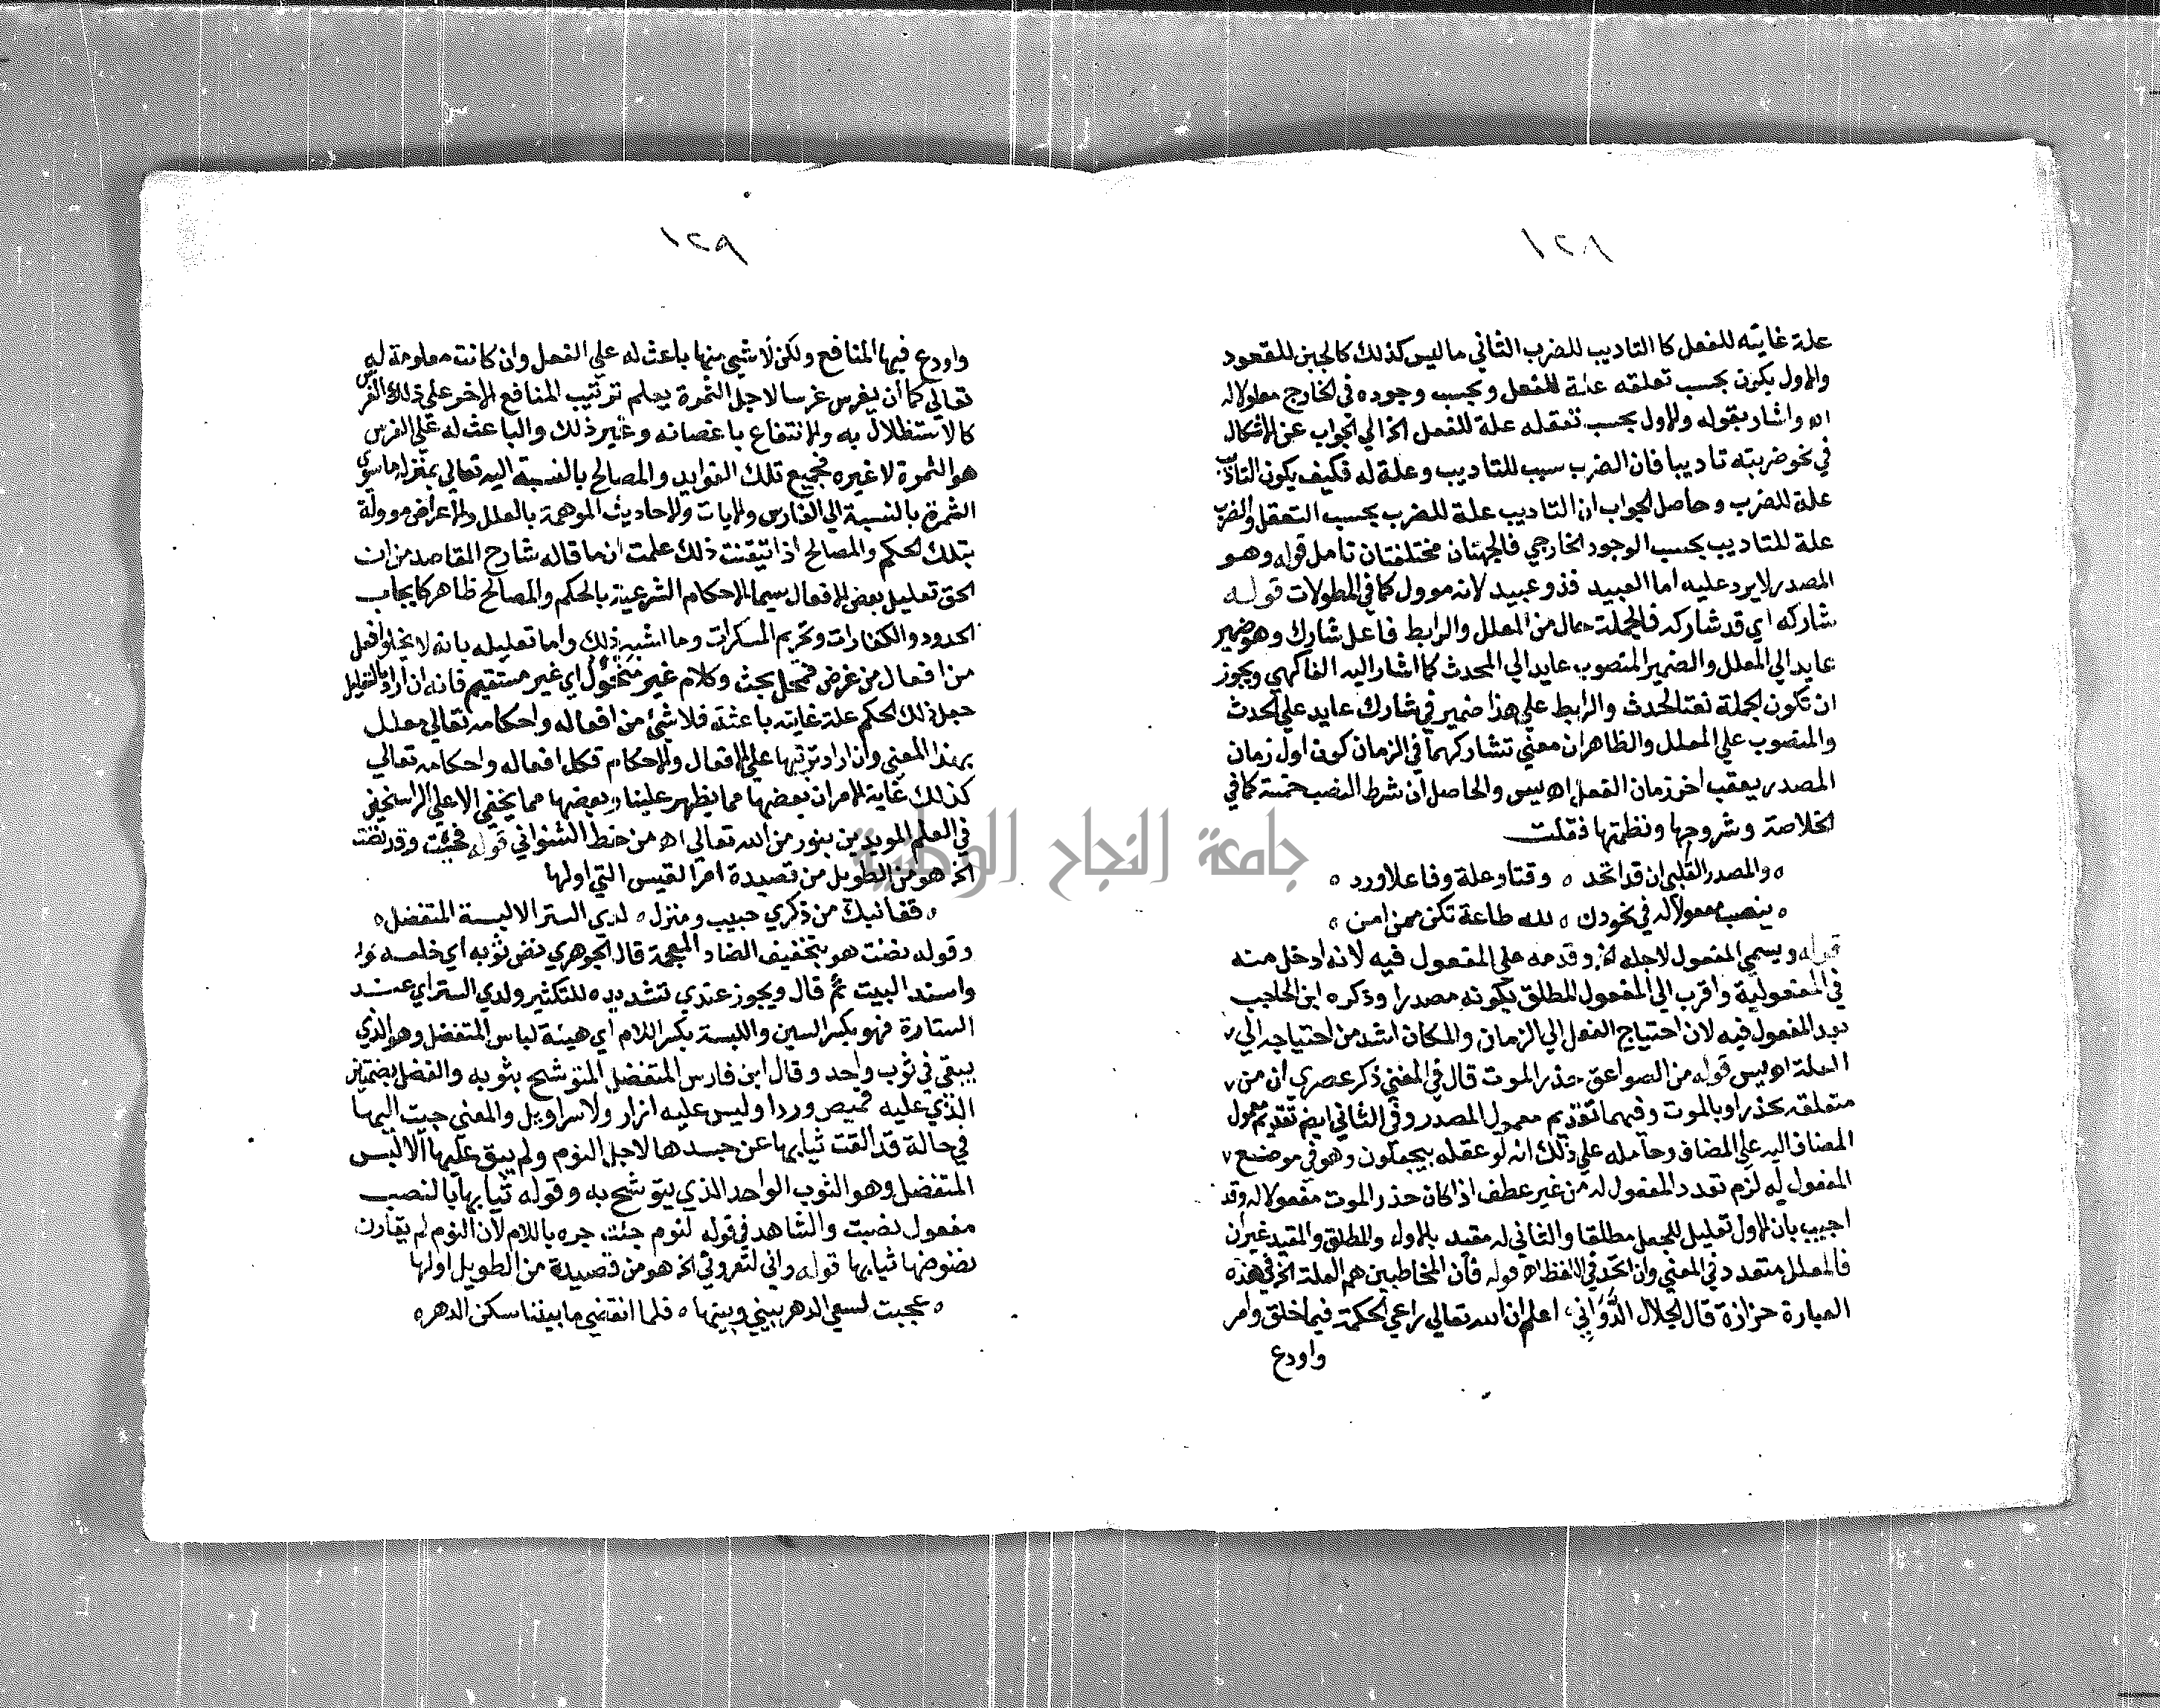 ١٢٨
علة غائية للفعل كالتاديب للضرب الثاني ماليس كذلك كالجبن للقعود
والاول يكون بحسب تعلقه علة للفعل وبحسب وجوده في الخارج معلولا له
اه واشار بقوله والاول بحسب تعقله علة للفعل الخ الي الجواب عن الاشكال
في نحو ضربته تاديبا فان الضرب سبب للتاديب وعلة له فكيف يكون التاديب
علة للضرب وحاصل الجواب ان التاديب علة للضرب بحسب التعقل والضرب
علة للتاديب بحسب الوجود الخارجي فالجهتان مختلفتان تامل قوله وهو
المصدر لا يرد عليه اما العبيد فذو عبيد لانه موول كما في المطولات قوله
شاركه اي قد شاركه فالجملة حال من المعلل والرابط فاعل شارك وهو ضمير
عايد الي المعلل والضمير المنصوب عايد الي المحدث كما اشار اليه الفاكهي ويجوز
ان تكون الجملة نعتا لحدث والرابط علي هذا ضمير في شارك عايد علي الحدث
والمنصوب علي المعلل والظاهر ان معني تشاركهما في الزمان كون اول زمان
المصدر يعقب اخر زمان الفعل اه يس والحاصل ان شرط النصب خمسة كما في
الخلاصة وشروحها ونظمتها فقلت
والمصدر القلبي ان قد اتحد ٥ وقتا وعلة وفاعلا ورد ٥
ينصب مفعولا له في نحو دن ٥ لله طاعة تكن ممن امن ٥
قوله ويسمي المفعول لاجله الخ وقدمه علي المفعول فيه لانه ادخل منه
في المفعولية واقرب الي المفعول المطلق بكونه مصدرا وذكره ابن الحاجب
بعد المفعول فيه لان احتياج الفعل الي الزمان والمكان اشد من احتياجه الي
العلة اه يس قوله من الصواعق حذر الموت قال في المغني ذكر عصري ان من
متعلقه بحذر او بالموت وفيهما تقديم معمول المصدر وفي الثاني ايضا تقديم معمول
المضاف اليه علي المضاف وحامله علي ذلك انه لو علقه بيجعلون وهو في موضع
المفعول له لزم تعدد المفعول له من غير عطف اذا كان حذر الموت مفعولا له وقد
اجيب بان الاول تعليل للجعل مطلقا والثاني له مقيد بالاول والمطلق والمقيد غيران
فالمعلل متعدد في المعني وان اتحد في اللفظ اه قوله فان المخاطبين هم العلة الخ في هذه
العبارة حزازة قال الجلال الدواني اعلم ان الله تعالي راعي الحكمة فيما خلق وامر
واودع
١٢٩
واودع فيها المنافع ولكن لا شيئ منها باعث له علي الفعل وان كانت معلومة له
تعالي كما ان يغرس غرسا لاجل الثمرة يعلم ترتيب المنافع الاخر علي ذلك الغرس
كالاستظلال به والانتفاع باغصانه وغير ذلك والباعث له علي الغرس
هو الثمرة لا غيره فجميع تلك الفوايد والمصالح بالنسبة اليه تعالي بمنزلة ما سوي
الثمرة بالنسبة الي الغارس والايات والاحاديث الموهمة بالعلل والاعراض موولة
بتلك الحكم والمصالح اذا تيقنت ذلك علمت ان ما قاله شارح المقاصد من ان
الحق تعليل بعض الافعال سيما الاحكام الشرعية بالحكم والمصالح ظاهر كايجاب
الحدود والكفارات وتحريم المسكرات وما اشبه ذلك واما تعليله بانه لا يخلو فعل
من افعال من غرض فمحل بحث وكلام غير منخول اي غير مستقيم فانه ان اراد بالتعليل
جعل ذلك الحكم علة غايته باعثة فلا شئ من افعاله واحكامه تعالي معلل
بهذا المعني وان اراد ترتبها علي الافعال والاحكام فكل افعاله واحكامه تعالي
كذلك غاية الامر ان بعضها مما يظهر علينا وبعضها مما يخفي الا علي الراسخين
في العلم المويدين بنور من الله تعالي اه من خط الشنواني قوله فجئت وقد نضت
الخ هو من الطويل من قصيدة امرا القيس التي اولها
٥ قفا نبك من ذكري حبيب ومنزل ٥ لدي الستر الا لبسة المتفضل ٥
وقوله نضت هو بتخفيف الضاد المعجمة قال الجوهري نض ثوبه اي خلعه
وانشد البيت ثم قال ويجوز عندي تشديده للتكثير ولدي الستر اي عند
الستارة فهو بكسر السين واللبسة بكسر اللام اي هيئة لباس المتفضل وهو الذي
يبقي في ثوب واحد وقال ابن فارس المتفضل المتوشح بثوبه والفضل بضمتين
الذي عليه قميص وردا وليس عليه ازار ولا سراويل والمعني جيت اليها
في حالة قد القت ثيابها عن جسدها لاجل النوم ولم يبق عليها الا لبس
المتفضل وهو الثوب الواحد الذي يتوشح به وقوله ثيابها بالنصب
مفعول نضت والشاهد في قوله لنوم حيث جره باللام لان النوم لم يقارن
نضوضها ثيابها قوله واني لتعروني الخ هو من قصيدة من الطويل اولها
٥ عجبت لسعي الدهر بيني وبينها ٥ فلما انقضي ما بيننا سكن الدهر ٥
جامعة النجاح الوطنية